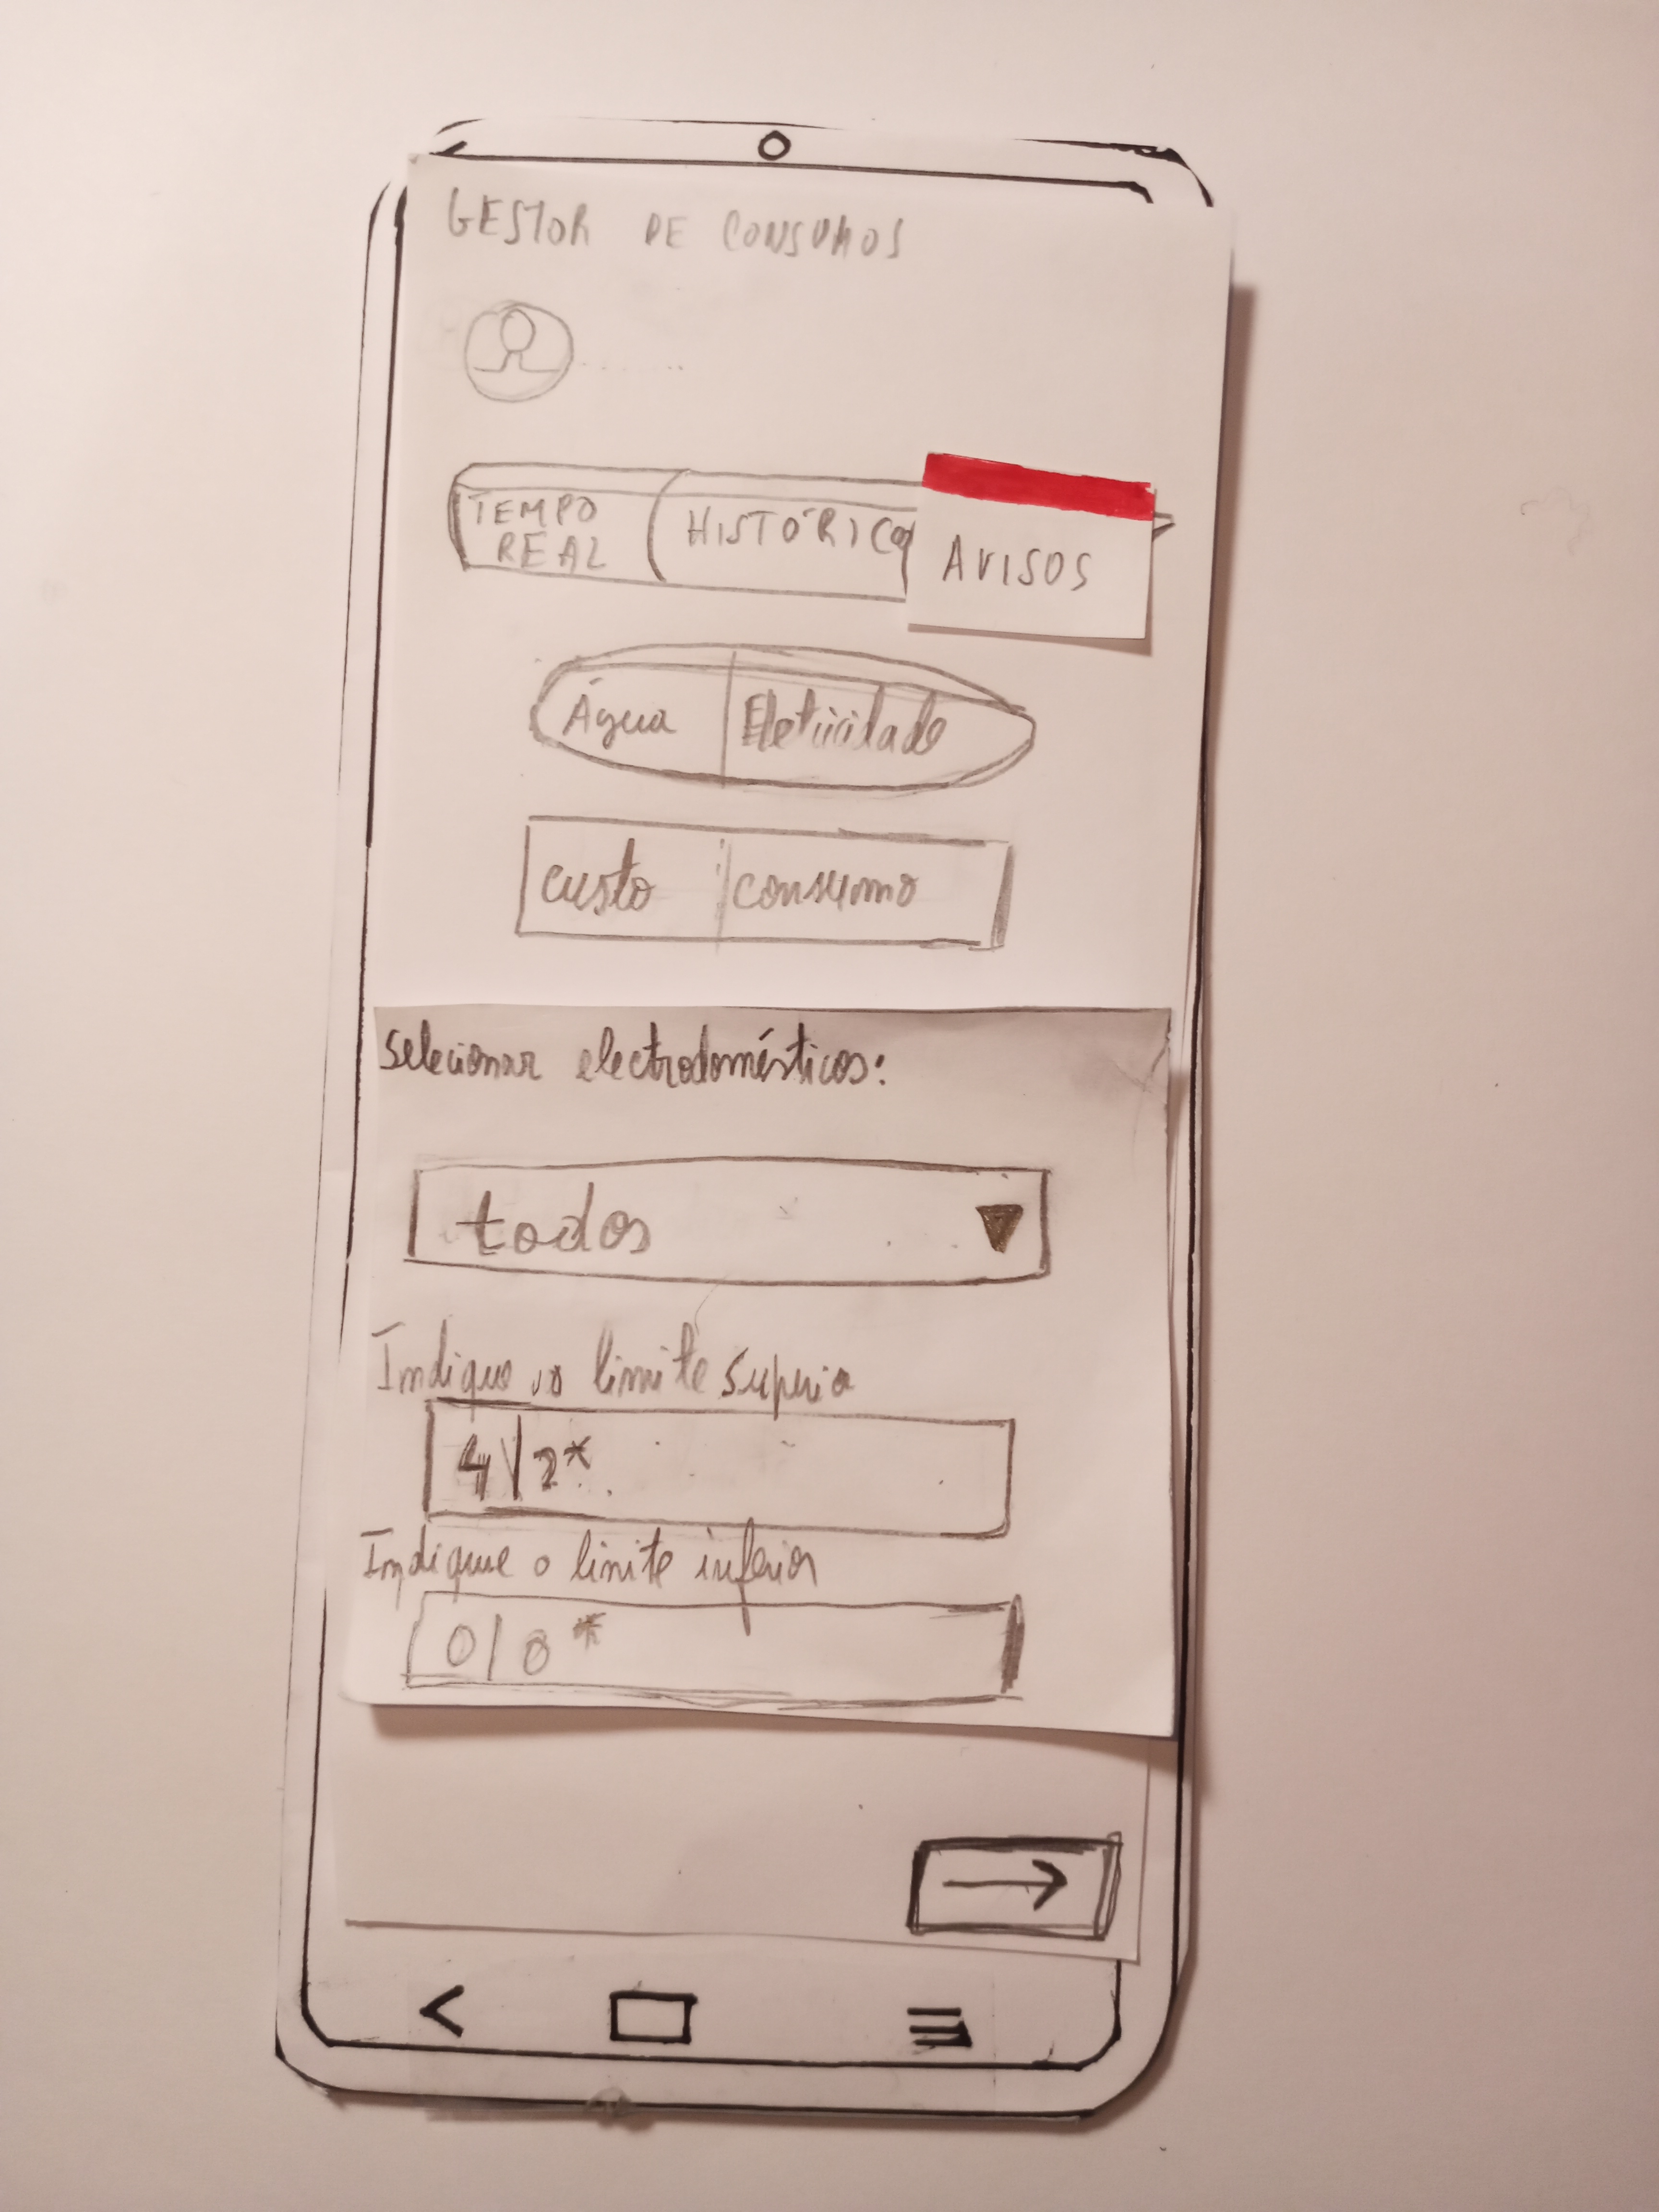 GESTOR DE CONSUMOS
TEMPO REAL
HISTÓRICO
AVISOS
Água
Eletricidade
custo
consumo
Selecionar electrodomésticos:
todos
Indique o limite superio
4|2*
Indique o limite inferior
0|0*